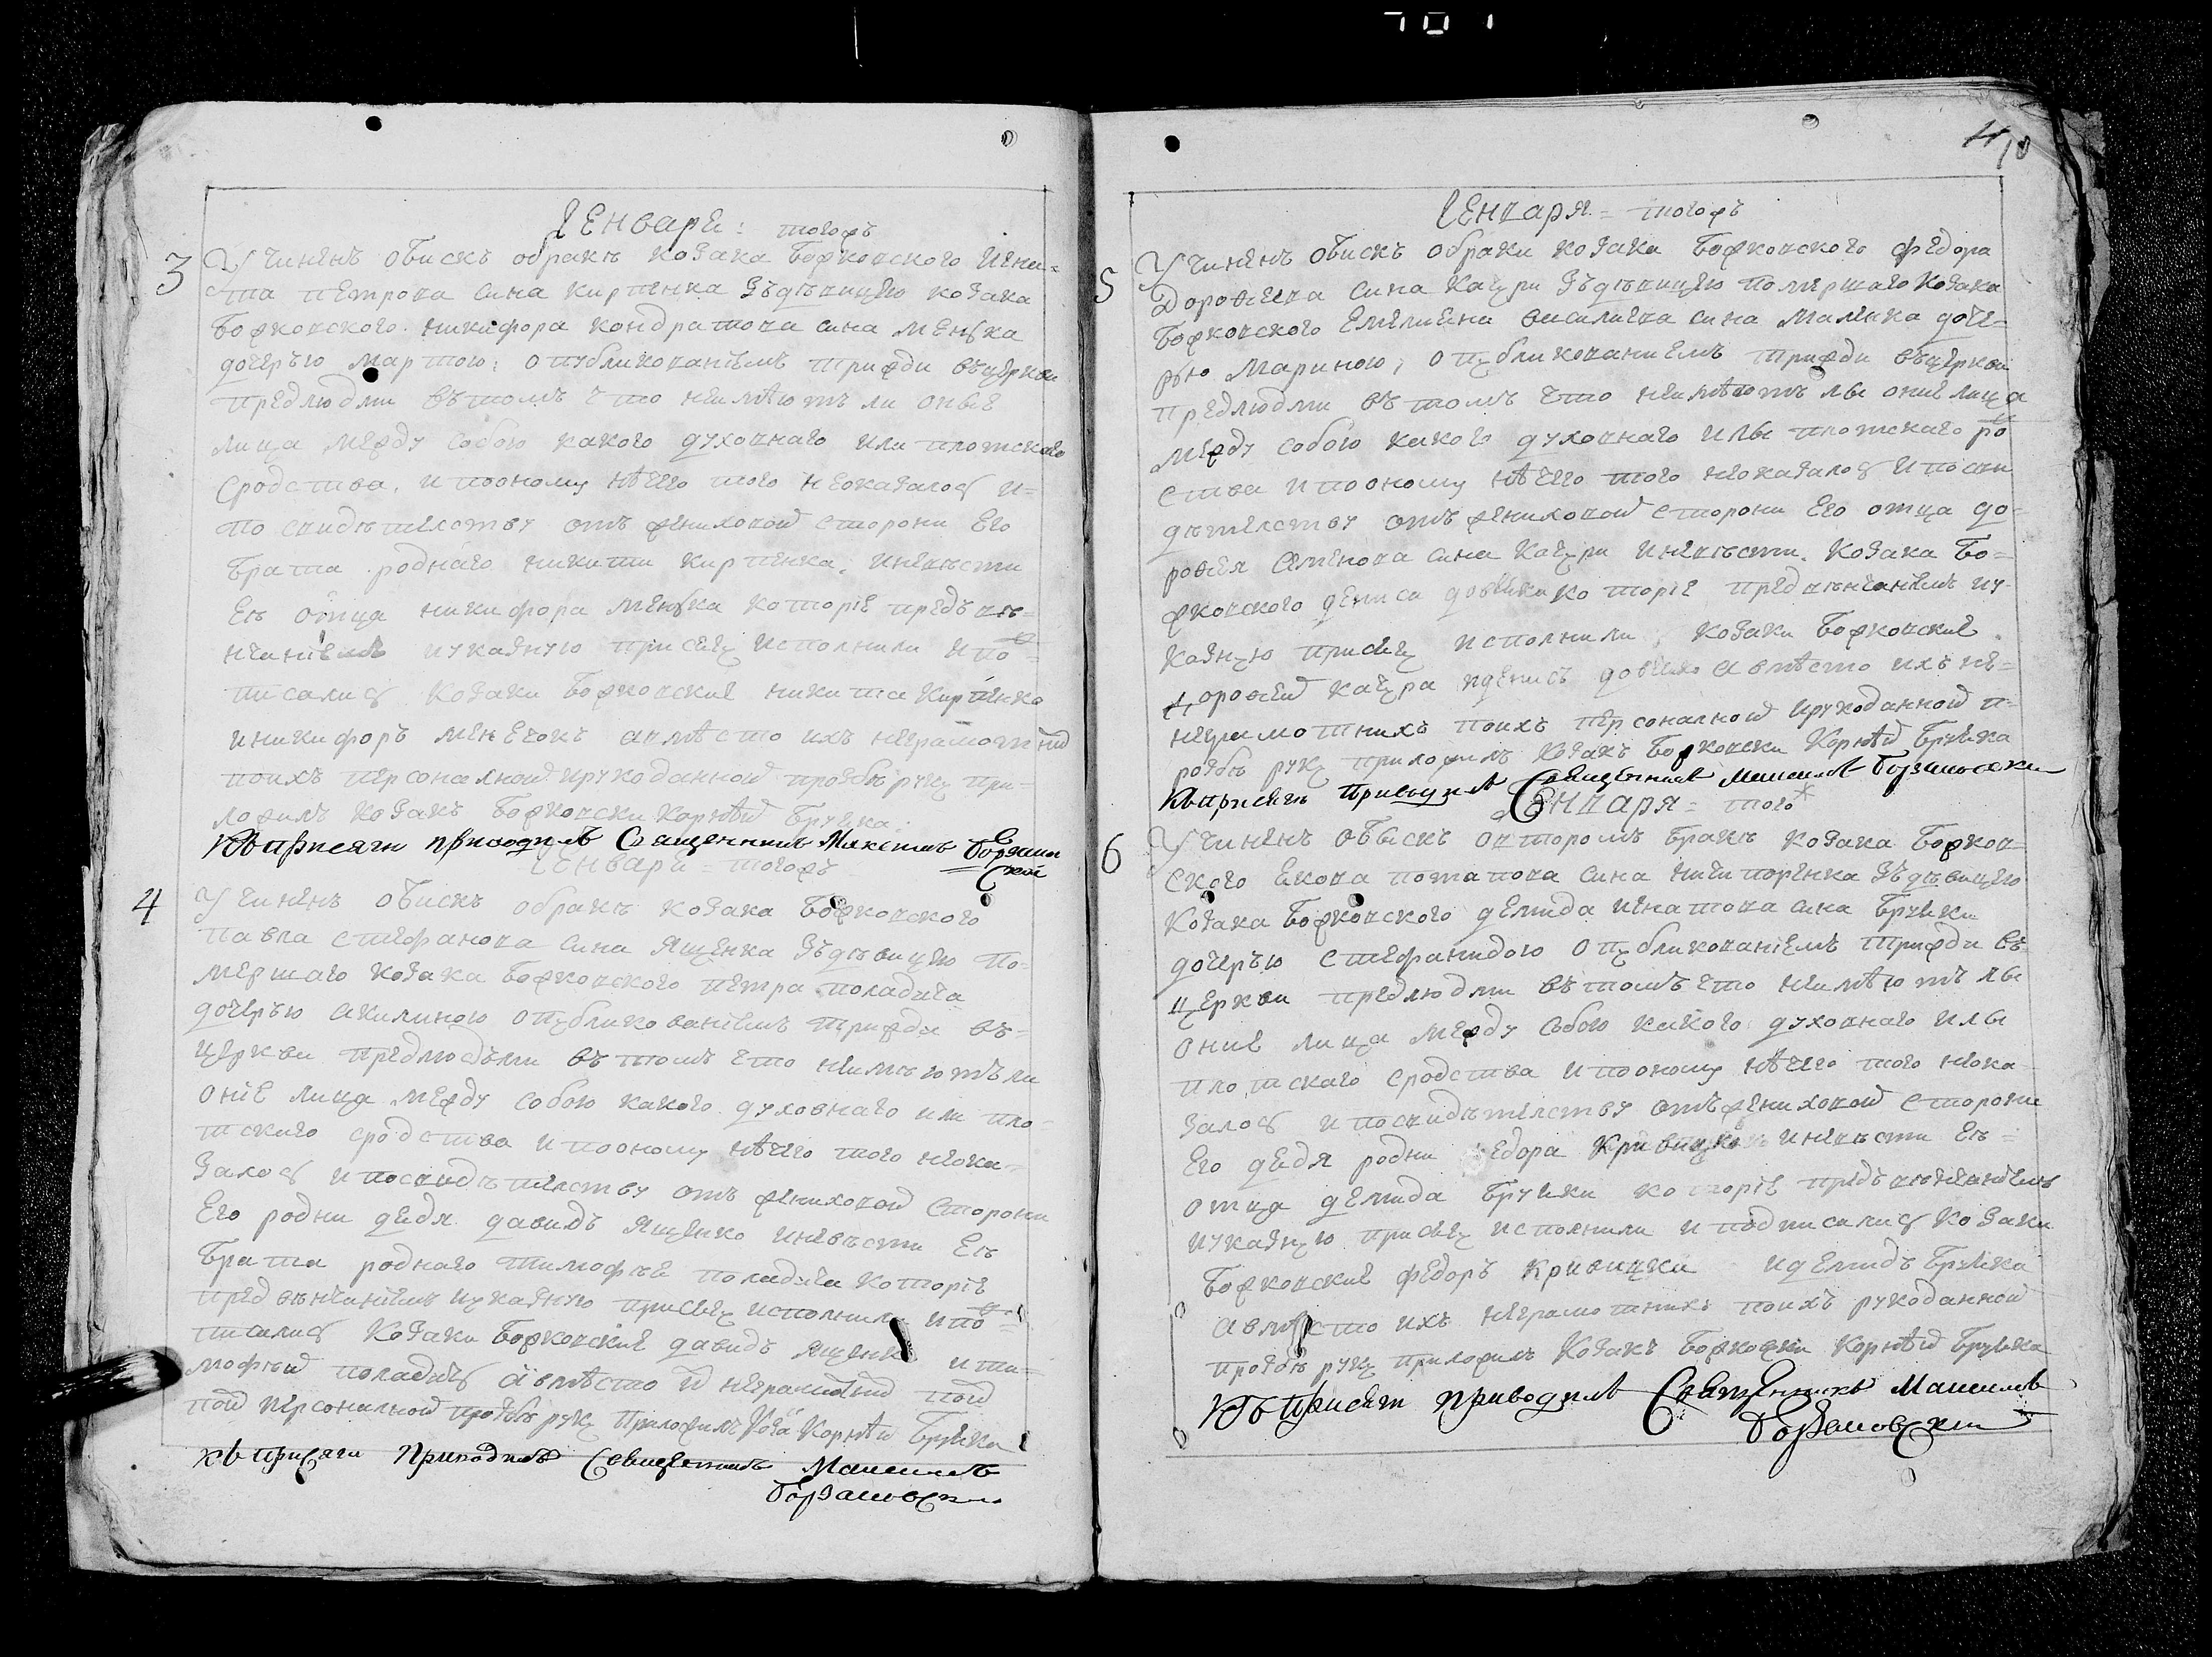 Генваря: тогожъ
3
Учиненъ обискъ обракѣ козака Божковского Игна-
та петрова сина кирпенка зъдѣвицею козака
Божковского никифора кондратова сина менъка
дочерью мартою; опубликованіемъ трижди въцеркви
предлюдми въ томъ что неимѣютъ ли оные
лица между собою какого духовнаго или плотскаго
сродства, ипооному нѣчего того неоказалос и-
по свидѣтелству отъ жениховой сторони его
брата роднаго никити кирпенка, иневѣсти
еѣ отца никифора менъка которіе предъ вѣ-
нчаніемъ иуказную присягу исполнили ипо-
писалис козаки Божковскіе никита кирпенко
иникифоръ менъ авмѣсто ихъ неграмотних
поихъ персоналной ирукоданной прозбѣ руку при-
ложилъ козакъ Божковски Корнѣй Бруяка
Къ присяги приводилъ Священникъ Максимъ Борзаков
ской
Генваря = тогожъ
4
Учиненъ обискъ обракѣ козака Божковского
павла стефанова сина Ященка зъдѣвицею по-
мершаго козака Божковского петра поладича
дочерью акилиною опубликованіемъ трижди въ-
церкви предлюдъми въ томъ что неимѣютъ ли
оніе лица между собою какого духовнаго или пло-
тскаго сродства ипооному нѣчего того неока-
залос ипосвидѣтелству отъ жениховой сторони
Его родни дядя давидъ Ященко иневѣсти Еѣ
брата роднаго тимофѣя поладича которіе
пред вѣнчаніемъ иуказную присягу исполнили ипо-
писалис Козаки Божковскіе давидъ Ященко ити-
мофѣй поладичъ авмѣсто
персоналной прозбѣ руку приложилъ Корнѣй Бруяка
къ присяги Приводилъ Священникъ Максимъ
Борзаковски
10
Генваря = тогожъ
5
Учиненъ обискъ обраки козака Божковского федора
Дорофеева сина Кацри зъдѣвицею помершаго Козака
Божковского Емелияна василиева сина Маленка доче-
рью Мариною, опубликованиемъ трижди въцеркви
предлюдми въ томъ что неимѣютъ лы оние лица
между собою какого духовнаго илы плотскаго ро
ства ипооному нѣчего того неоказалос ипосви
дѣтелству отъ жениховой сторони Его отца до-
рофея Семенова сина Кацри иневѣсти козака Бо-
жковского дениса которіе предвѣнчаніемъ иу-
казную присягу исполнили, козаки Божковские
дорофей кацра иденисъ авмѣсто ихъ не-
грамотнихъ поихъ персоналной ирукоданной п-
розбѣ руку приложилъ козакъ Божковски Корнѣй Бруяка
Къприсягѣ Приводилъ Священникъ Максимъ Борзаковски
Генваря = того*
6
Учиненъ обыскъ овторомъ бракѣ козака Божков-
ского Якова потапова сина ничипоренка зъдѣвицею
Козака Божковского демида игнатова сина Бруяки
дочерью стефанидою опубликованіемъ трижди въ
церкви предлюдми въ томъ что неимѣютъ лы
оние лица между собою какого духовнаго илы
плотскаго сродства ипооному нѣчего того неока-
залос ипосвидѣтелству отъжениховой сторони
Его дядя родни федора Кривицко иневѣсти Еѣ
отца демида бруяки которіе предъвѣнчаніемъ
иуказную присягу исполнили иподписалис козаки
Божковские федоръ Кривицки идемидъ Бруяка
авмѣсто ихъ неграмотнихъ поихъ рукоданной
прозбѣ руку приложилъ Козакъ Божковски Корнѣй Бруяка
Къ присяги приводилъ Священникъ Максимъ
Борзаковски